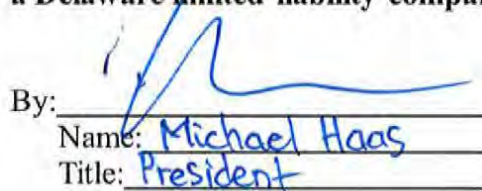 a Delaware limited liability compa
By:
Name: Michael Haas
Title: President